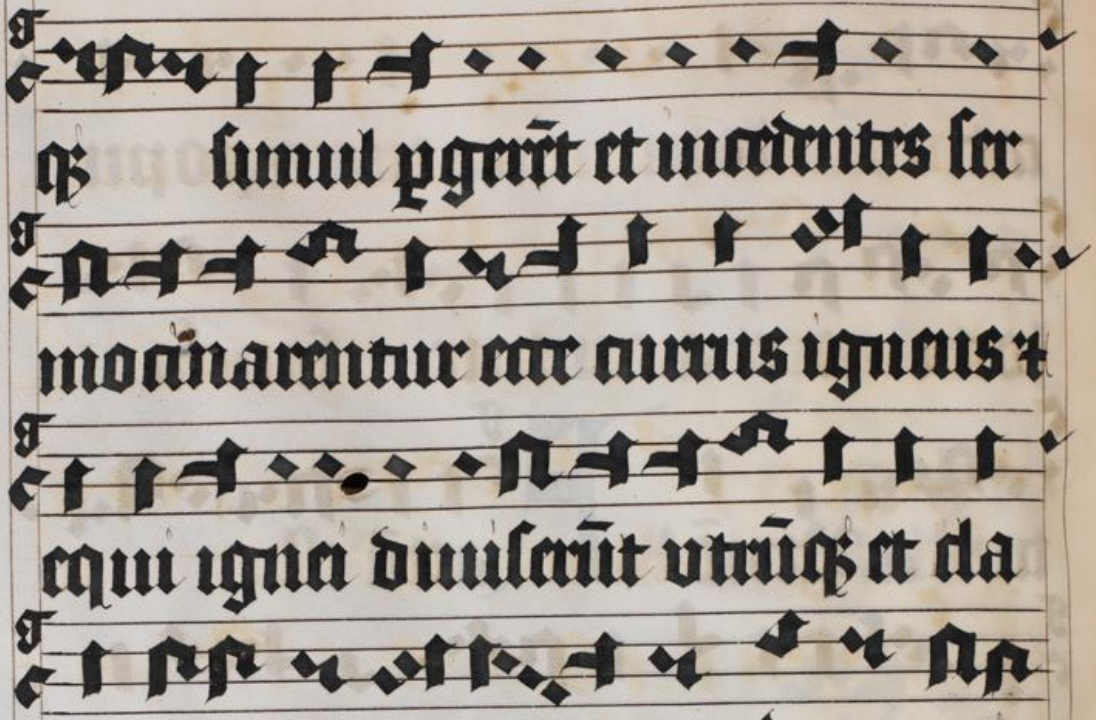 qꝫ simul ꝑgerēt et incedentes ser
mocinarentur ecce currus igneus ⁊
equi ignei diuiserūt vtrūqꝫ et elia